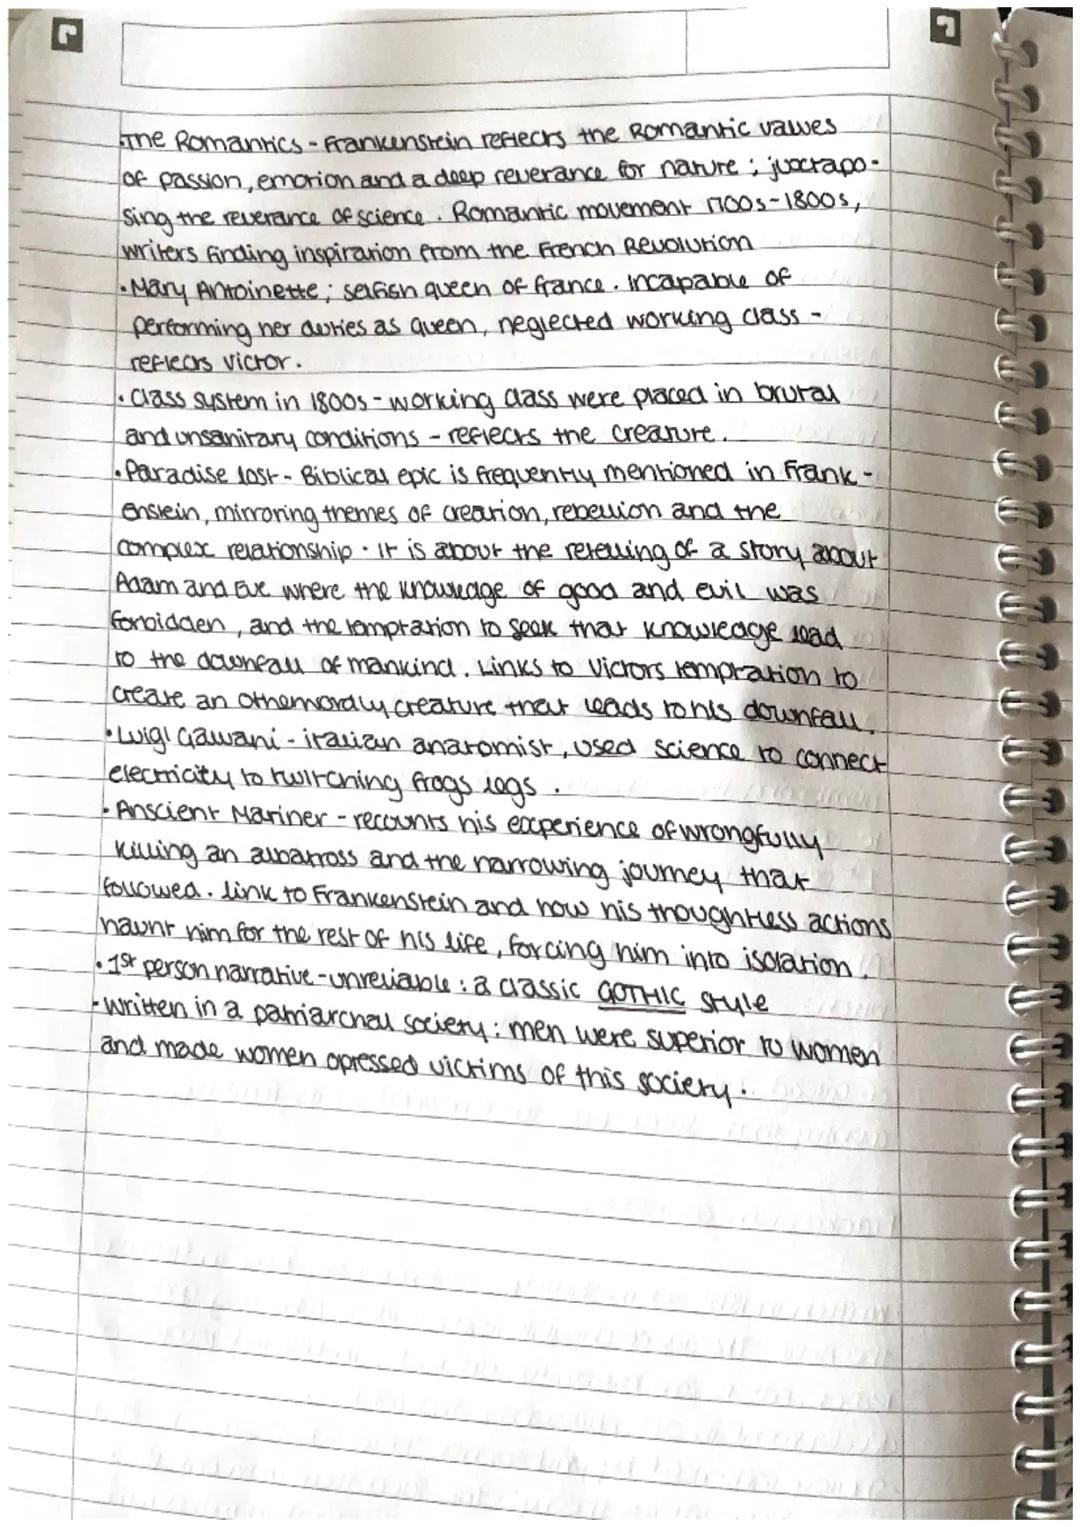 ·The Romantics - Frankenstein reflects the Romantic values
of passion, emotion and a deep reverance for nature ; juxtapo-
sing the reverance of science . Romantic movement 1700s-1800s,
writers finding inspiration from the French Revolution
·Mary Antoinette; selfish queen of france . Incapable of
performing her duties as queen, neglected working class -
reflects Victor .
·Class system in 1800s - working class were placed in brutal
and unsanitary conditions - reflects the creature .
·Paradise lost - Biblical epic is frequently mentioned in Frank-
enstein, mirroring themes of creation, rebellion and the
complex relationship . It is about the retelling of a story about
Adam and Eve where the knowledge of good and evil was
forbidden , and the temptation to seek that knowledge lead
to the downfall of mankind . Links to Victors temptation to
create an otherwordly creature that leads to his downfall .
·Luigi Galvani - italian anatomist, used science to connect
electricity to twitching frogs legs .
·Anscient Mariner - recounts his experience of wrongfully
killing an albatross and the harrowing journey that
followed . link to Frankenstein and how his thoughtless actions
haunt him for the rest of his life , forcing him into isolation .
·1st person narrative - unreliable : a classic GOTHIC style
-written in a patriarchal society : men were superior to women
and made women opressed victims of this society .